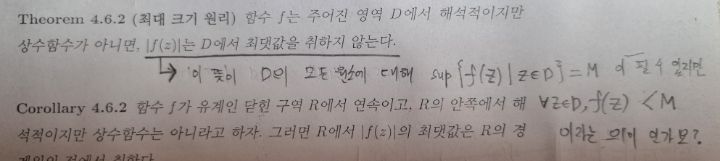 Theorem 4.6.2 (최대 크기 원리) 함수 f는 주어진 영역 D에서 해석적이지만
상수함수가 아니면, |f(z)|는 D에서 최댓값을 취하지 않는다.
이 뜻이 D의 모든 원소에 대해 sup{f(z)|z∈D}=M 이
Corollary 4.6.2 함수 f가 유계인 닫힌 구역 R에서 연속이고, R의 안쪽에서 해
∀z∈D, f(z) < M
석적이지만 상수함수는 아니라고 하자. 그러면 R에서 |f(z)|의 최댓값은 R의 경
이라는 의미 인가보?
계위의 점에서 취한다.